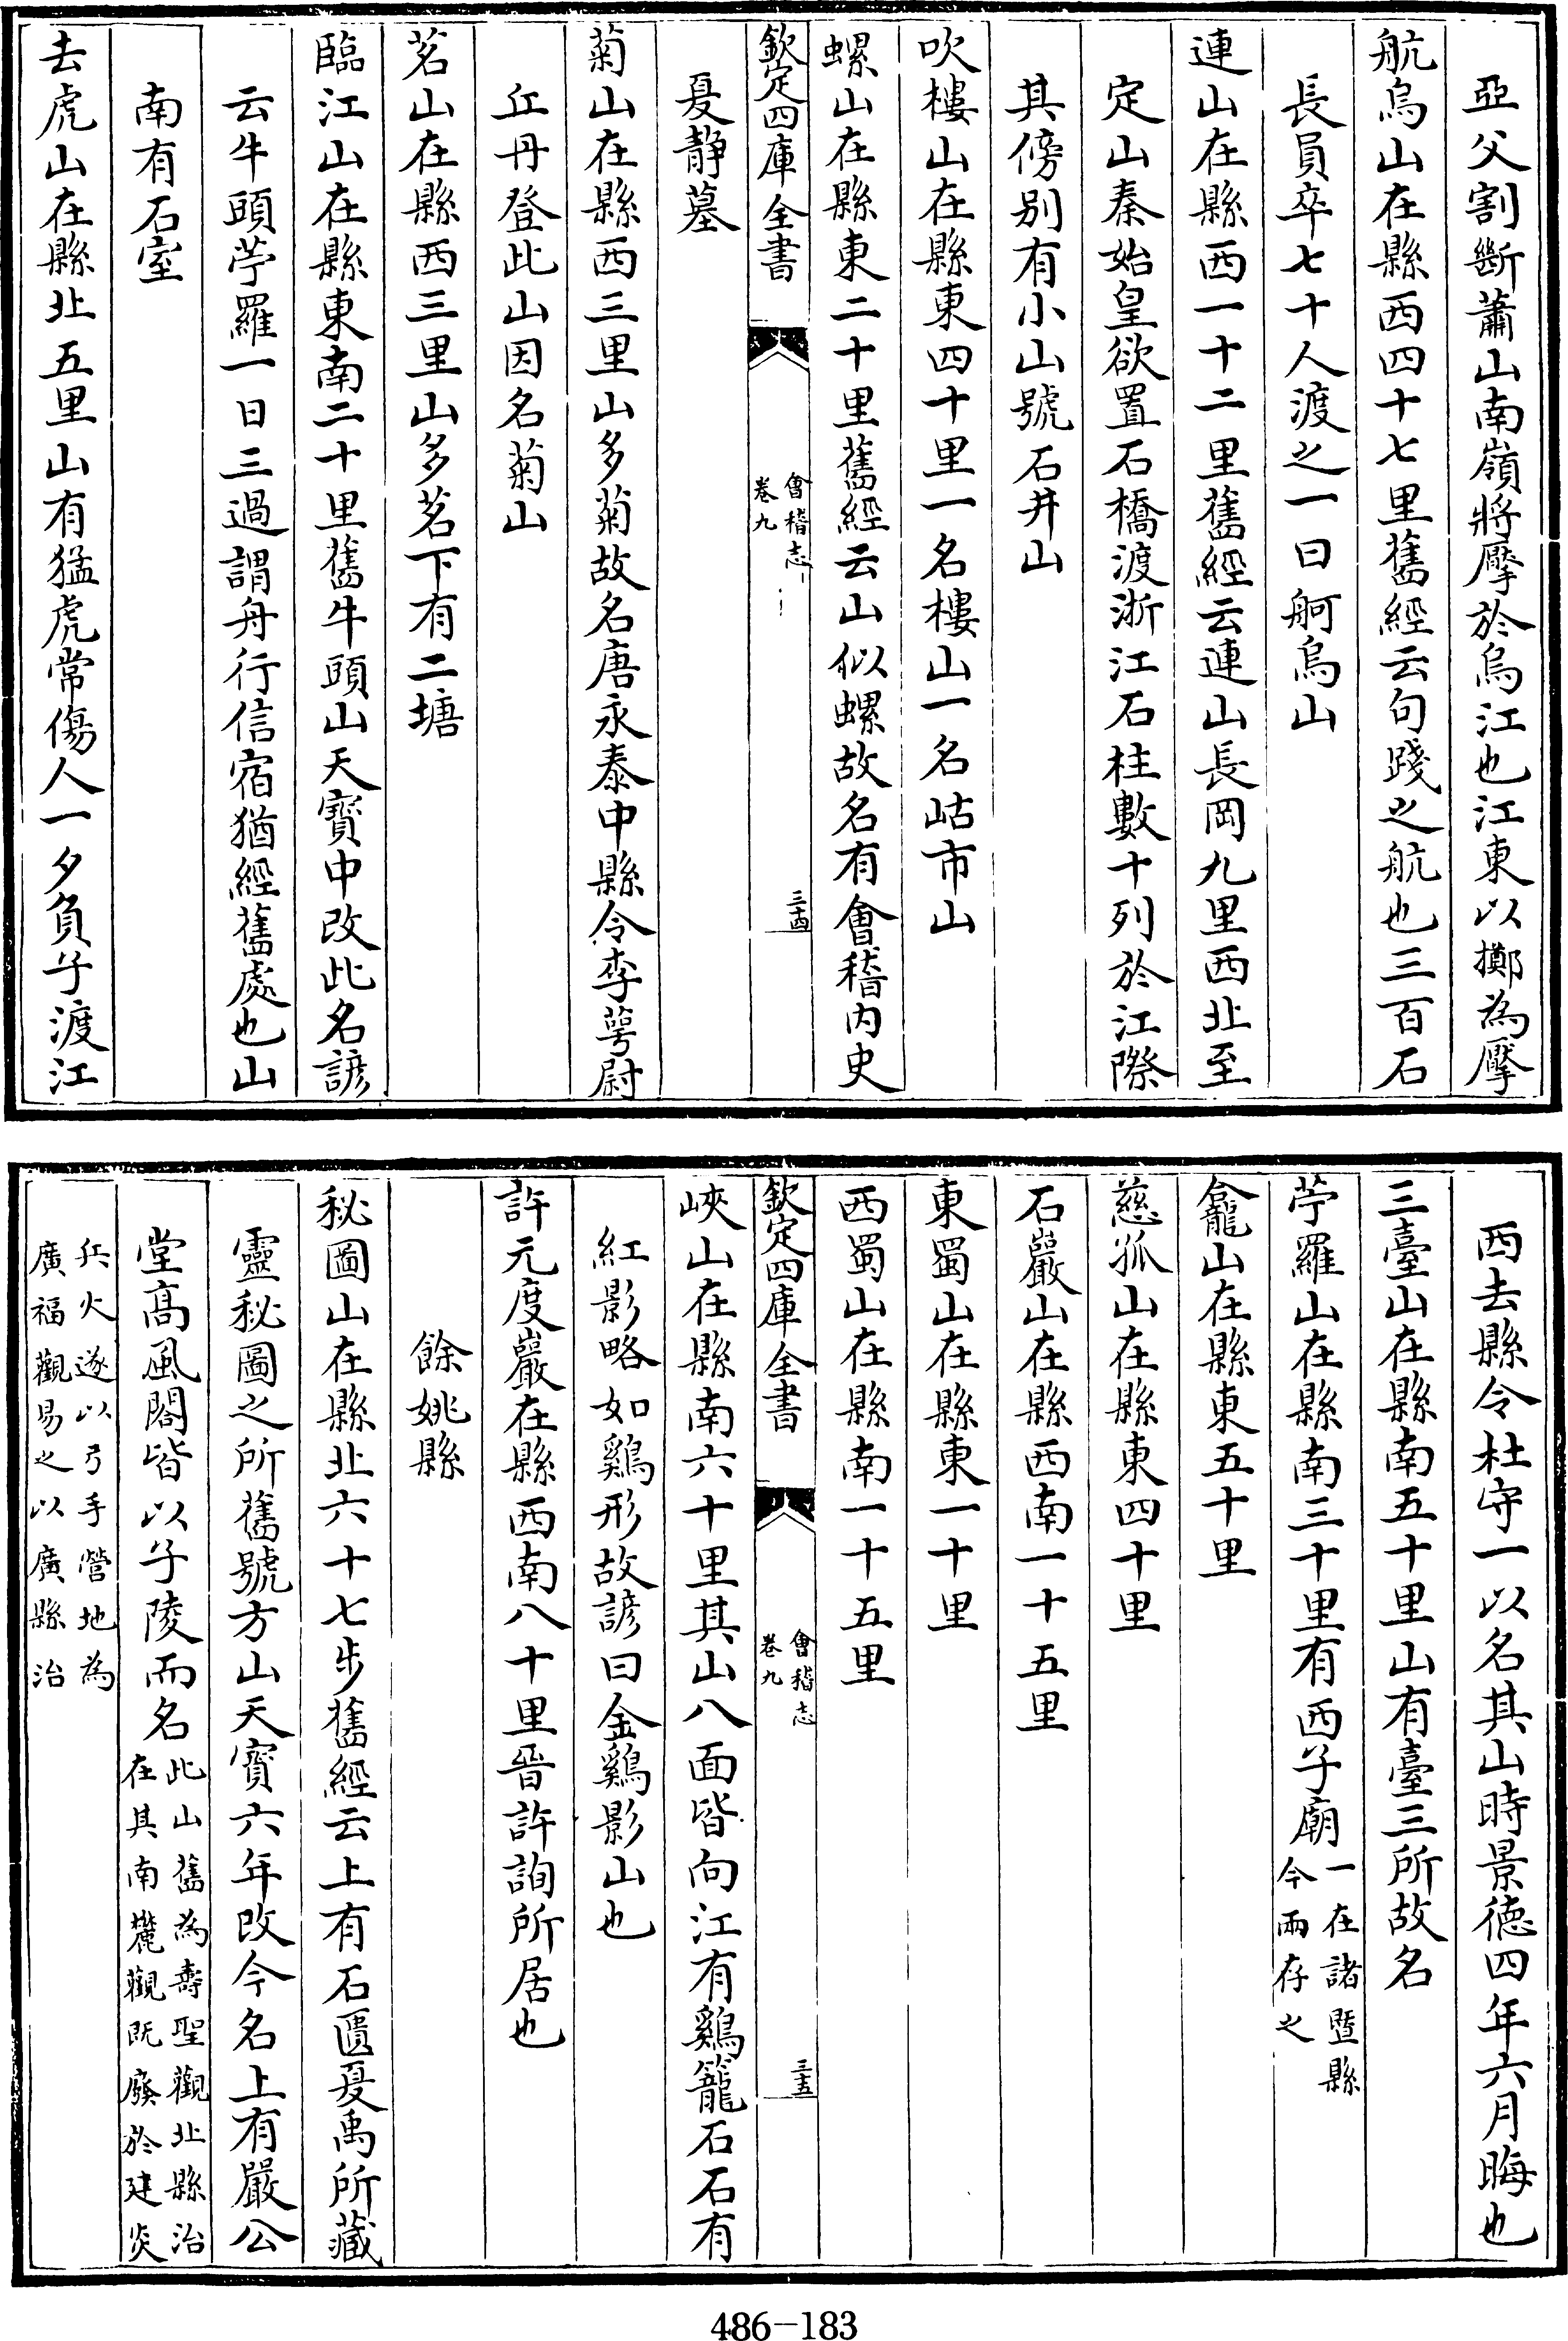 亞父割斷蕭山南嶺將㕓於烏江也江東以擲為㕓
航烏山在縣西四十七里舊經云句踐之航也三百石
長員卒七十人渡之一曰舸烏山
連山在縣西一十二里舊經云連山長岡九里西北至
定山秦始皇欲置石橋渡浙江石柱數十列於江際
其傍別有小山號石井山
吹樓山在縣東四十里一名樓山一名岵市山
螺山在縣東二十里舊經云山似螺故名有會稽內史
欽定四庫全書
會稽志
卷九
三十四
夏靜墓
菊山在縣西三里山多菊故名唐永泰中縣令李萼尉
丘丹登此山因名菊山
茗山在縣西三里山多茗下有二塘
臨江山在縣東南二十里舊牛頭山天寶中改此名諺
云牛頭苧羅一日三過謂舟行信宿猶經舊處也山
南有石室
去虎山在縣北五里山有猛虎常傷人一夕負子渡江
西去縣令杜守一以名其山時景德四年六月晦也
三臺山在縣南五十里山有臺三所故名
苧羅山在縣南三十里有西子廟
一在諸暨縣
今兩存之
龕山在縣東五十里
慈孤山在縣東四十里
石巖山在縣西南一十五里
東蜀山在縣東一十里
西蜀山在縣南一十五里
欽定四庫全書
會稽志
卷九
三十五
峽山在縣南六十里其山八面皆向江有鷄籠石石有
紅影略如鷄形故諺曰金鷄影山也
許元度巖在縣西南八十里晉許詢所居也
餘姚縣
秘圖山在縣北六十七步舊經云上有石匱夏禹所藏
靈秘圖之所舊號方山天寶六年改今名上有嚴公
堂高風閣皆以子陵而名
此山舊為壽聖觀北縣治
在其南麓觀既廢於建炎
兵火遂以弓手營地為
廣福觀易之以廣縣治
486-183